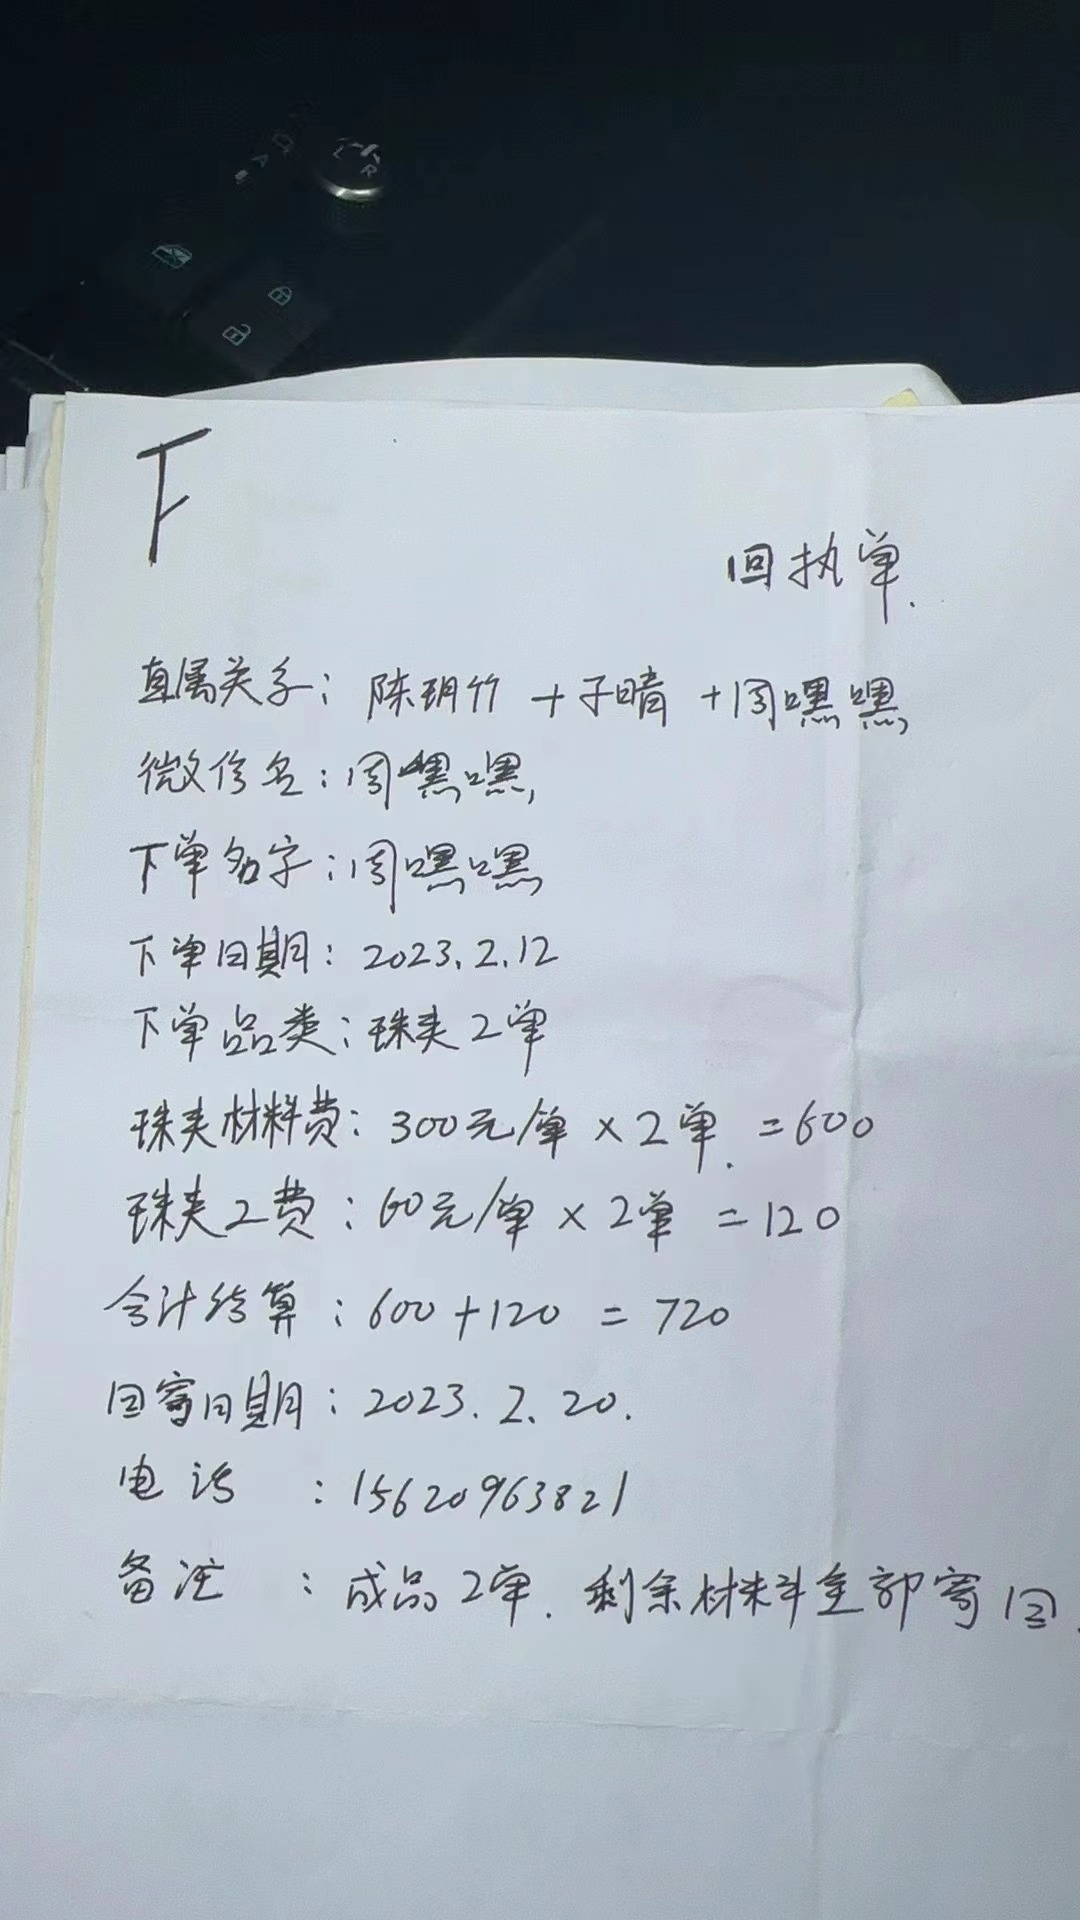 F
回执单.
直属关系: 陈玥竹 +子晴 +周嘿嘿
微信名: 周嘿嘿
下单名字: 周嘿嘿
下单日期: 2023.2.12
下单品类: 珠夹2单
珠夹材料费: 300元/单 × 2单. =600
珠夹工费: 60元/单 × 2单 =120
合计结算: 600+120 = 720
回寄日期: 2023.2.20.
电话 : 15620963821
备注 : 成品2单. 剩余材料全部寄回.